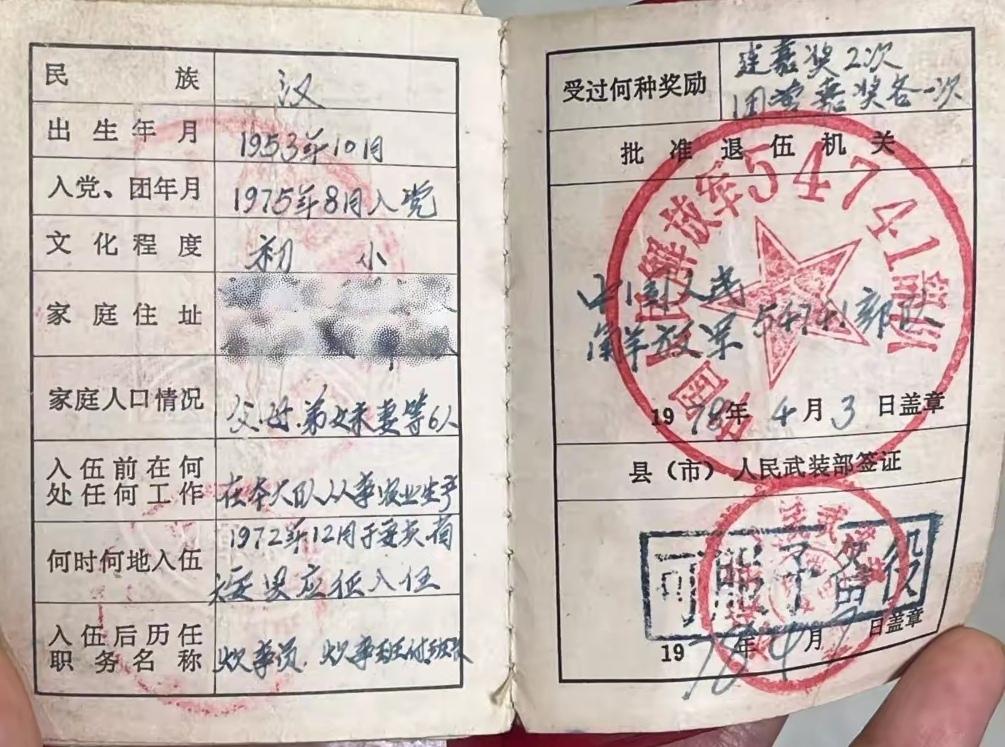 民族 汉
出生年月 1953年10月
入党、团年月 1975年8月入党
文化程度 初小
家庭住址
家庭人口情况 父.母.弟妹妻等6人
入伍前在何
处任何工作 在本大队从事农业生产
何时何地入伍 1972年12月于
应征入伍
入伍后历任
职务名称 炊事员、炊事班付班长
受过何种奖励 连嘉奖2次
团营嘉奖各一次
批准退伍机关
中国人民解放军54741部队
中国人民
解放军54741部队
1978年4月3日盖章
县（市）人民武装部签证
可服予备役
1978年4月7日盖章